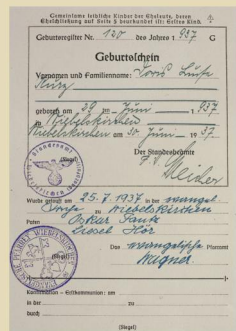 Gemeinsame leibliche Kinder der Eheleute, deren
Eheschließung auf Seite 5 beurkundet ist: Erstes Kind.
Geburtsregister Nr. 120 des Jahres 1937 G
Geburtsschein
Vornamen und Familienname:
Kurz
geboren am 29 ten Juni 1937
zu Wiebelskirchen
Wiebelskirchen am 30. Juni 1937.
Der Standesbeamte
(Siegel)
Wurde getauft am 25.7.1937 in der evangel.
Kirche zu Wiebelskirchen
Paten Oskar
Liesel
Das evangelische Pfarramt
(Siegel) Wagner
Konfirmation – Erstkommunion: am
in der zu
durch
(Siegel)